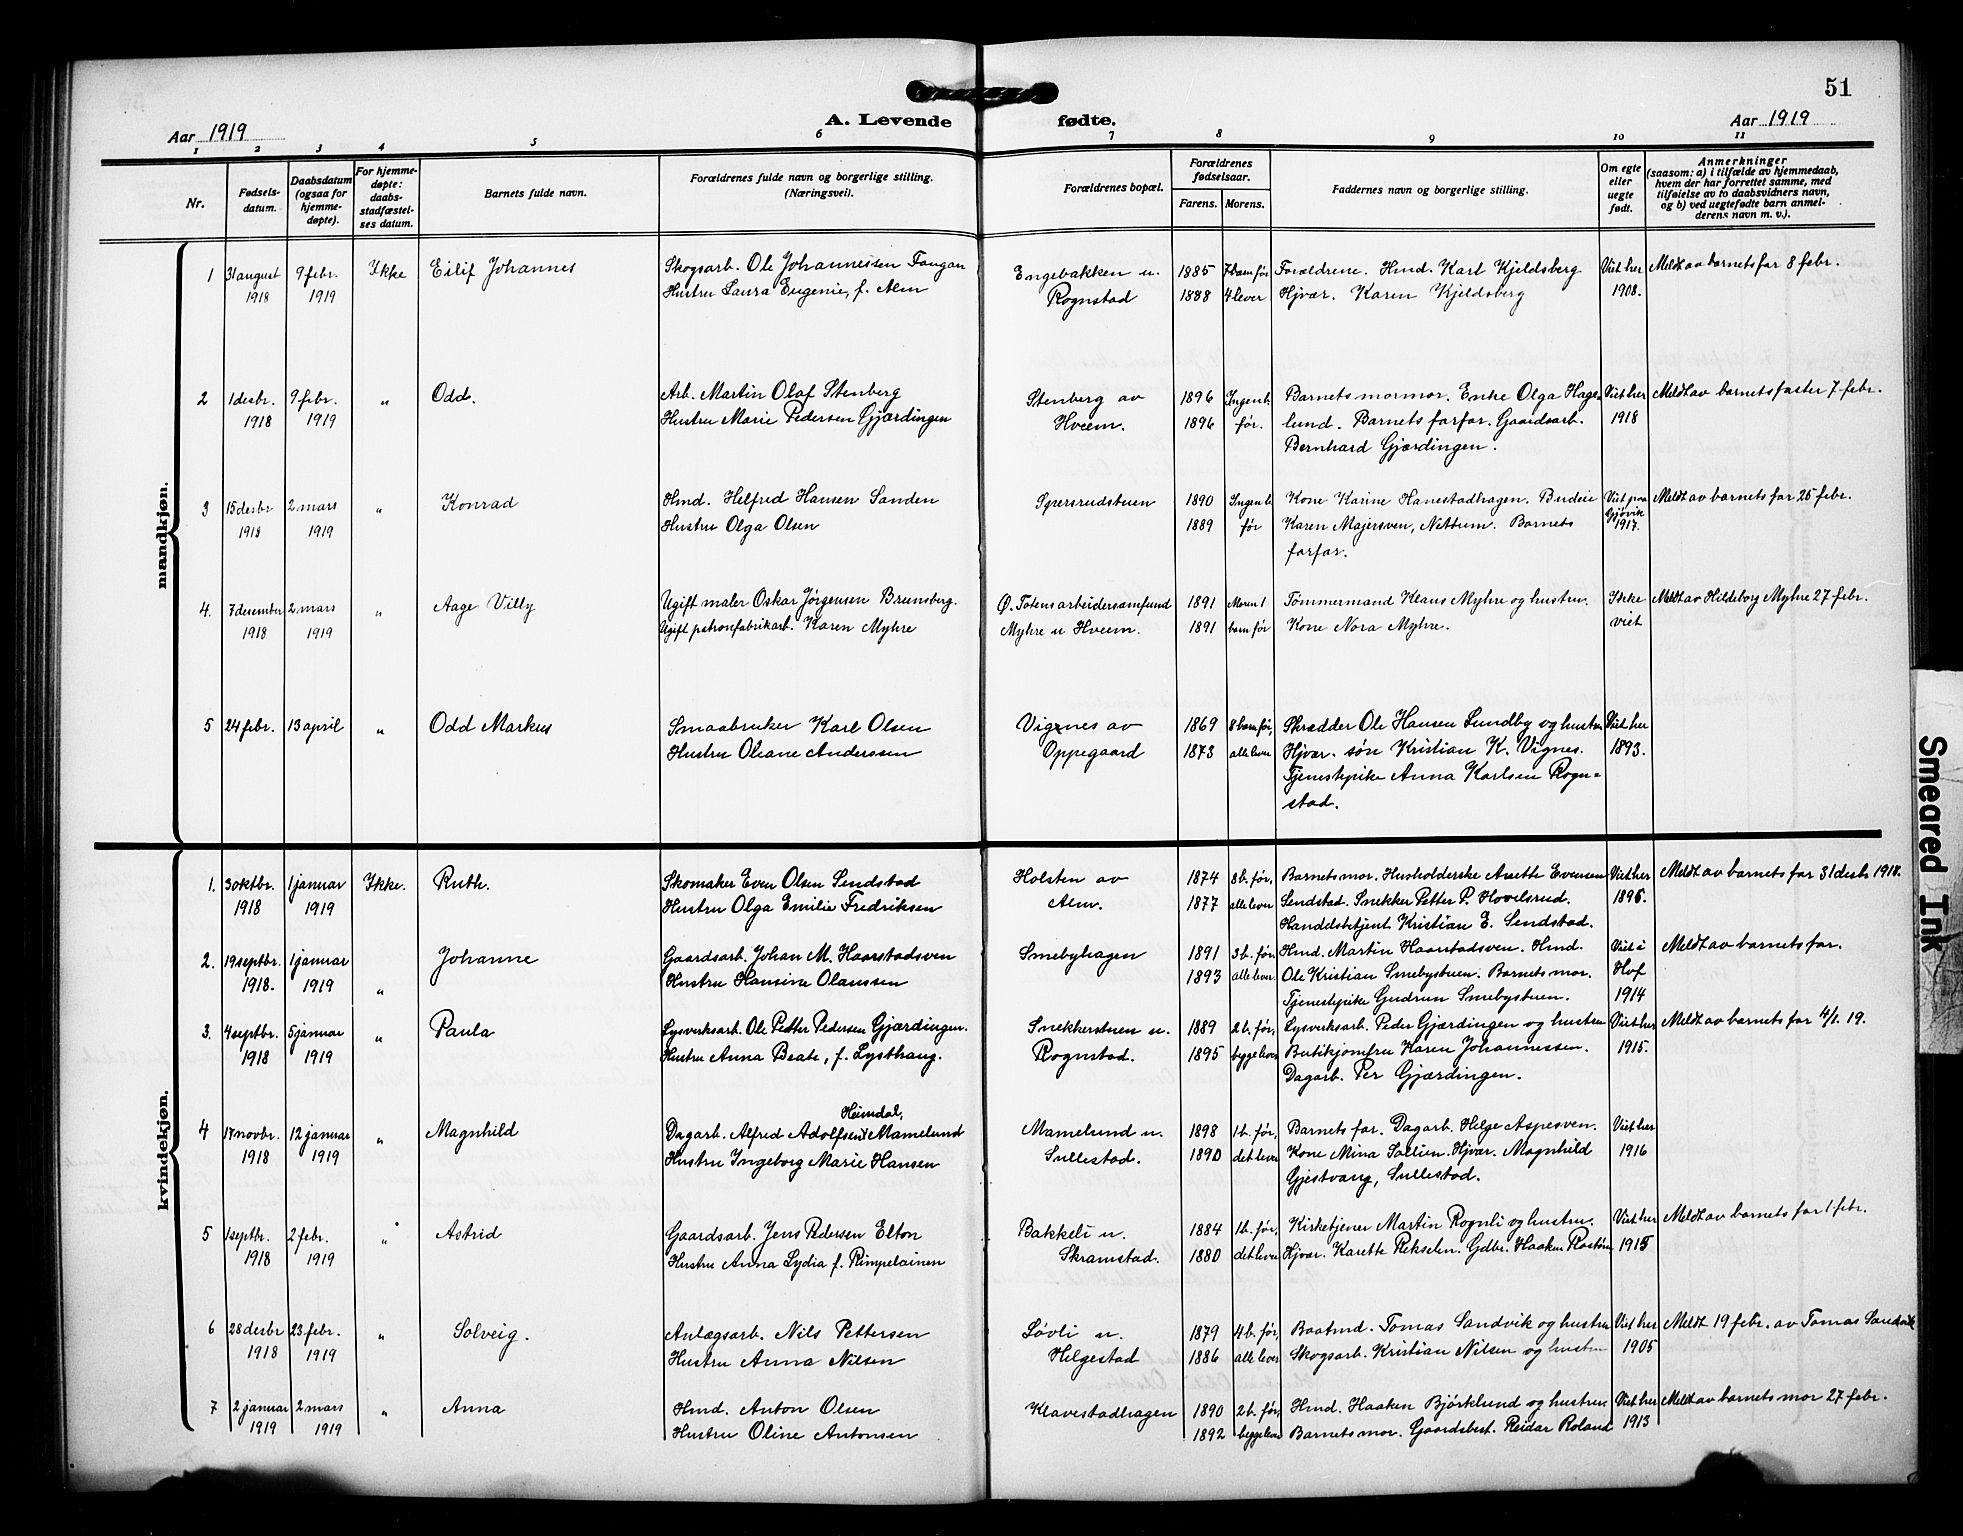 51
A. Levende fødte.
Aar 1919
Aar 1919
1 2 3 4 5 6 7 8 9 10 11
Nr.
Fødsels-
datum.
Daabsdatum
(ogsaa for
hjemme-
døpte).
For hjemme-
døpte:
daabs-
stadfæstel-
ses datum.
Barnets fulde navn.
Forældrenes fulde navn og borgerlige stilling.
(Næringsvei).
Forældrenes bopæl.
Forældrenes
fødselsaar.
Farens. Morens.
Faddernes navn og borgerlige stilling.
Om egte
eller
uegte
født.
Anmerkninger
(saasom: a) i tilfælde av hjemmedaab,
hvem der har forrettet samme, med
tilføielse av to daabsvidners navn,
og b) ved uegtefødte barn anmel-
derens navn m. v.).
mandkjøn.
1 31 august 9 febr. Ikke Eilif Johannes Skogsarb. Ole Johannessen Faugan Engebakken u. 1885 7 barn før Forældrene. Hmd. Karl Kjeldsberg Viet her Meldt av barnets far 8 febr.
1918 1919 Hustru Laura Eugenie, f. Alm Rognstad 1888 4 lever Hjvær. Karen Kjeldsberg 1908.
2 1 desbr. 9 febr. „ Odd. Arb. Martin Olaf Stenberg Stenberg av 1896 Ingen b. Barnets mormor. Enke Olga Hage- Viet her Meldt av barnets faster 7 febr.
1918 1919 Hustru Marie Pedersen Gjærdingen Hveem. 1896 før. lund. Barnets farfar. Gaardsarb. 1918
Bernhard Gjærdingen.
3 15 desbr 2 mars „ Konrad Hmd. Helfred Hansen Sanden 1890 Ingen b. Kone Karine Hanestadhagen. Budeie Viet paa Meldt av barnets far 25 febr.
1918 1919 Hustru Olga Olsen 1889 før Karen Majersven, Nettum. Barnets Gjøvik
farfar. 1917.
4. 7 desember 2 mars „ Aage Villy Ugift maler Oskar Jørgensen Brunsberg. Ø. Totens arbeidersamfund 1891 Moren 1 Tømmermand Klaus Myhre og hustru. Ikke Meldt av Hildeborg Myhre 27 febr.
1918 1919 Ugift patronfabrikarb. Karen Myhre Myhre u Hveem. 1891 barn før Kone Nora Myhre. viet
5 24 febr. 13 april „ Odd Markus Smaabruker Karl Olsen Vignes av 1869 8 barn før, Skrædder Ole Hansen Lundby og hustru Viet her
Hustru Oliane Anderssen Oppegaard 1873 alle lever Hjvær. søn Kristian K. Vignes. 1893.
Tjenestepike Anna Karlsen Rogn-
stad.
kvindekjøn.
1. 30 ktbr. 1 januar Ikke. Ruth. Skomaker Even Olsen Sendstad Holsten av 1874 8 b. før, Barnets mor. Husholderske Anette Evensen Viet her Meldt av barnets far 31 desb 1918.
1918 1919 Hustru Olga Emilie Fredriksen Alm. 1877 alle lever Sendstad. Snekker Petter P. Hovelsrud. 1896.
Handelsbetjent Kristian E. Sendstad.
2. 19 septbr. 1 januar Johanne Gaardsarb. Johan M. Haarstadsven Smebyhagen 1891 3 b. før, Hmd. Martin Haarstadsven. Hmd. Viet i Meldt av barnets far.
1918. 1919 „ Hustru Hansine Olaussen 1893 alle lever Ole Kristian Smebystuen. Barnets mor. Hof
Tjenestepike Gudrun Smebystuen. 1914
3. 4 septbr. 5 januar „ Paula Lysverksarb. Ole Petter Pedersen Gjærdingen. Snekkerstuen u. 1889 2 b. før, Lysverksarb. Peder Gjærdingen og hustru Viet her Meldt av barnets far 4/1. 19.
1918 1919 Hustru Anna Beate, f. Lysthaug. Rognstad. 1895 begge lever Butikjomfru Karen Johannessen. 1915.
Dagarb. Per Gjærdingen.
Heimdal,
4 17 novbr. 12 januar „ Magnhild Dagarb. Alfred Adolfsen Mamelund Mamelund u. 1898 1 b. før, Barnets far. Dagarb. Helge Aspesven. Viet her
1918 1919 Hustru Ingeborg Marie Hansen Sullestad. 1890 det lever Kone Mina Sollien. Hjvær. Magnhild 1916
Gjestvang, Sullestad.
5 1 septbr. 2 febr. „ Astrid Gaardsarb. Jens Pedersen Elton Bakkeli u. 1884 1 b. før, Kirketjener Martin Rognli og hustru. Viet her Meldt av barnets far 1 febr.
1918 1919 Hustru Anna Lydia f. Rimpelainen Skramstad. 1880 det lever Hjvær. Karette Rekselen. Gdbr. Haaken 1915
6 28 desbr 23 febr. „ Solveig. Anlægsarb. Nils Pettersen Løvli u. 1879 4 b. før, Baatmd. Tomas Sandvik og hustru Viet her Meldt 19 febr. av Tomas Sandvik
1918 1919 Hustru Anna Nilsen Helgestad 1886 alle lever Skogsarb. Kristian Nilsen og hustru 1905
7 2 januar 2 mars „ Anna Hmd. Anton Olsen Klavestadhagen 1890 2 b. før, Hmd. Haaken Bjørklund og hustru Viet her Meldt av barnets mor 27 febr.
1919 1919 Hustru Oline Antonsen 1892 begge lever Barnets mor. Gaardsbest. Reidar Roland 1913
Smeared Ink